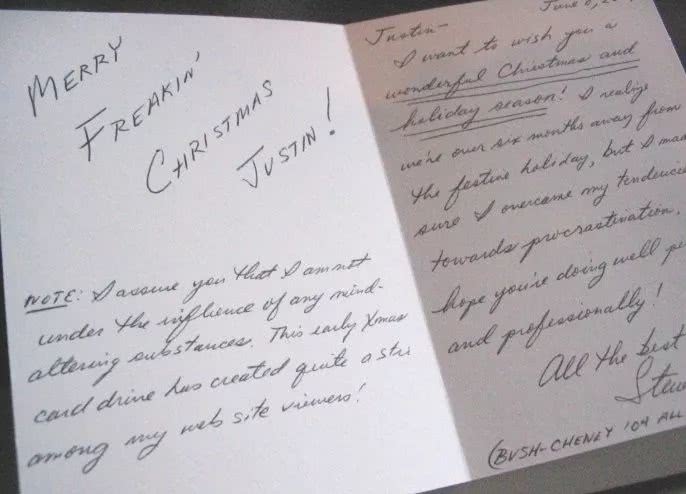 MERRY
FREAKIN'
CHRISTMAS
JUSTIN!
NOTE: I assure you that I am not
under the influence of any mind-
altering substances. This early Xmas
card drive has created quite a stir
among my web site viewers!
June 6,
Justin-
I want to wish you a
wonderful Christmas and
holiday season! I realize
we're over six months away from
the festive holiday, but I
sure I overcame my tendencie
towards procrastination.
hope you're doing well pe
and professionally!
All the best
Steve
(BUSH-CHENEY '04 ALL